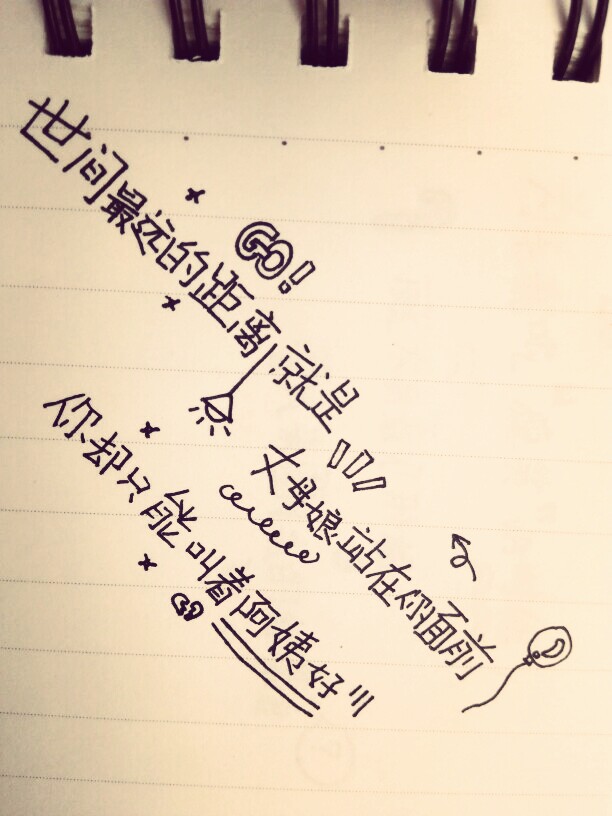 世间最远的距离就是
GO!
丈母娘站在你面前
你却只能叫着阿姨好!!